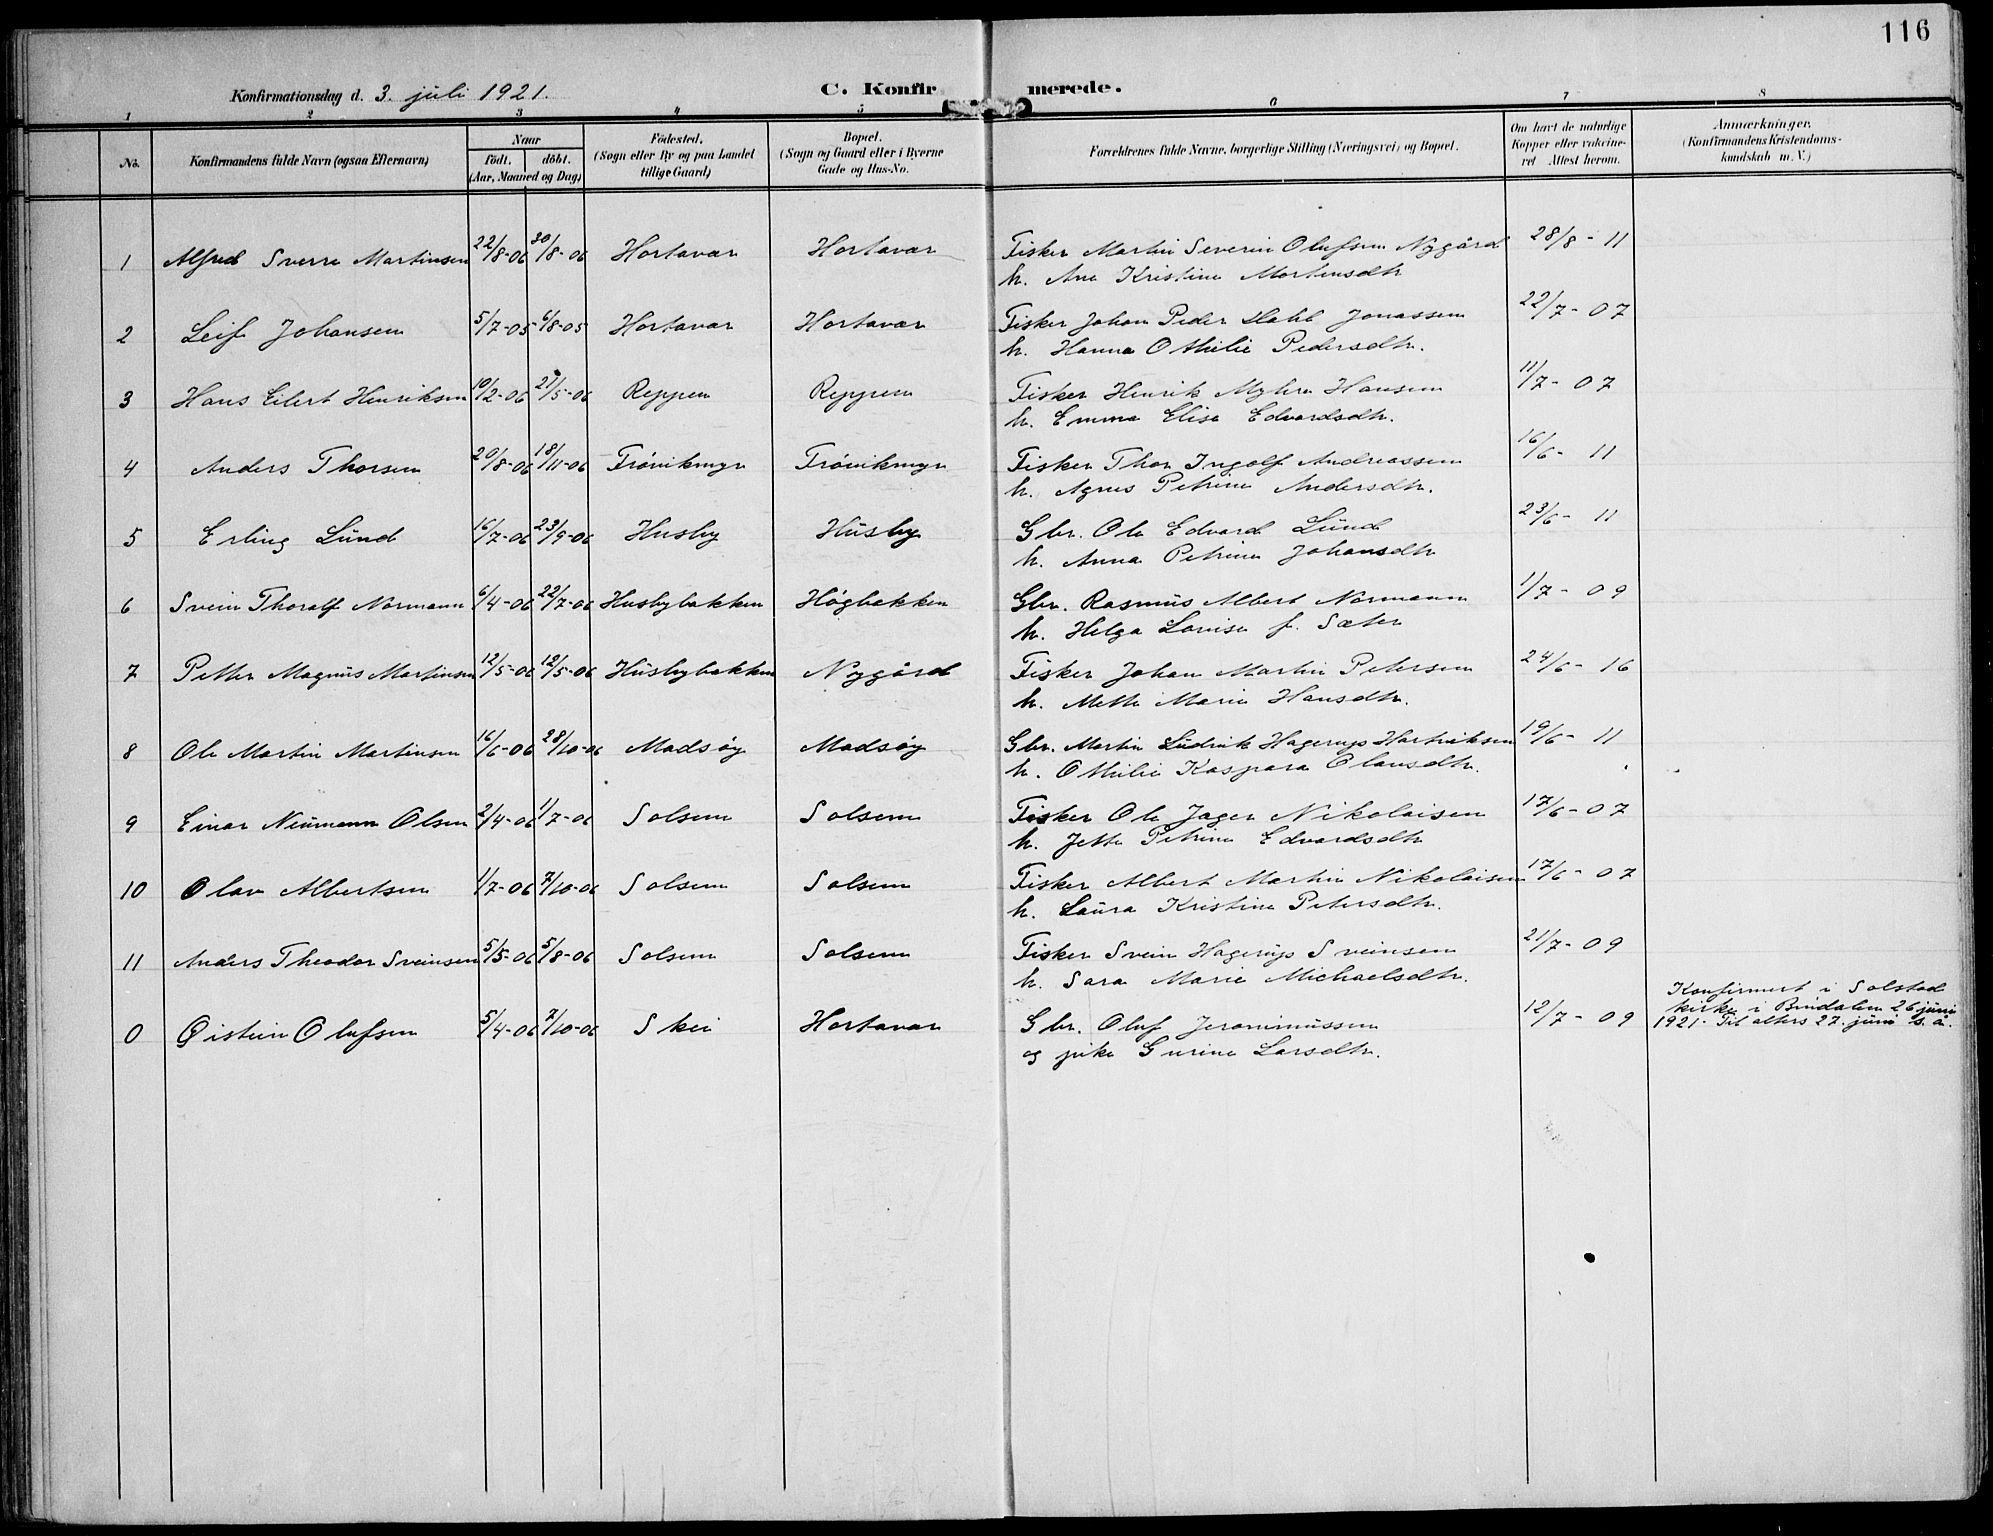 116
Konfirmationsdag d. 3. juli 1921.
C. Konfirmerede.
1 2 3 4 5 6 7 8
No.
Konfirmandens fulde Navn (ogsaa Efternavn)
Naar
födt. döbt.
(Aar, Maaned og Dag)
Födested.
(Sogn eller By og paa Landet
tillige Gaard)
Bopæl.
(Sogn og Gaard eller i Byerne
Gade og Hus-No.
Forældrenes fulde Navne, borgerlige Stilling (Næringsvei) og Bopæl.
Om havt de naturlige
Kopper eller vakcine-
ret Attest herom.
Anmærkninger.
(Konfirmandens Kristendoms-
kundskab m. V.)
1 Alfred Sverre Martinsen 22/8-06 30/8-06 Hortavær Hortavær Fisker Martin Severin Olufsen Nygård 28/8-11
h. Ane Kristine Mortensdtr
2 Leif Johansen 5/7-05 6/8-05 Hortavær Hortavær Fisker Johan Peder Dahl Jonassen 22/7-07
h. Hanna Othilie Pedersdtr.
3 Hans Eilert Henriksen 10/2-06 27/5-06 Reppen Reppen Fisker Henrik Myhre Hansen 11/7-07
h. Emma Elise Edvardsdtr.
4 Anders Thorsen 20/8-06 18/11-06 Frövikmyr Frövikmyr Fisker Thor Ingolf Andreassen 16/6-11
h. Agnes Petrine Andersdtr.
5 Erling Lund 16/7-06 23/9-06 Husby Husby Gbr. Ole Edvard Lund 23/6-11
h. Anna Petrine Johansdtr
6 Svein Thoralf Normann 6/4-06 22/7-06 Husbybakken Högbakken Gbr. Rasmus Albert Normann 1/7-09
h. Helga Lovise f. Sæter
7 Petter Magnus Martinsen 12/5-06 12/5-06 Husbybakken Nygård Fisker Johan Martin Petersen 24/6-16
h. Mette Marie Hansdtr.
8 Ole Martin Martinsen 16/6-06 28/10-06 Madsøy Madsøy Gbr. Martin Ludvik Hagerup Hartviksen 19/6-11
h. Othilie Kaspara Olausdtr.
9 Einar Neumann Olsen 2/4-06 1/7-06 Solsem Solsem Fisker Ole Jager Nikolaisen 17/6-07
h. Jette Petrine Edvardsdtr
10 Olav Albertsen 1/7-06 7/10-06 Solsem Solsem Fisker Albert Martin Nikolaisen 17/6-07
h. Laura Kristine Petersdtr.
11 Anders Theodor Sveinsen 5/5-06 5/8-06 Solsem Solsem Fisker Svein Hagerup Sveinsen 21/7-09
h. Sara Marie Michaelsdtr.
0 Øistein Olufsen 5/4-06 7/10-06 Skei Hortavær Gbr. Oluf Jeronimussen 12/7-09
og pike Gurine Larsdtr.
Konfirmert i Solstad
kirke i Bindalen 26 juni
1921. Til alters 27. juni s. å.